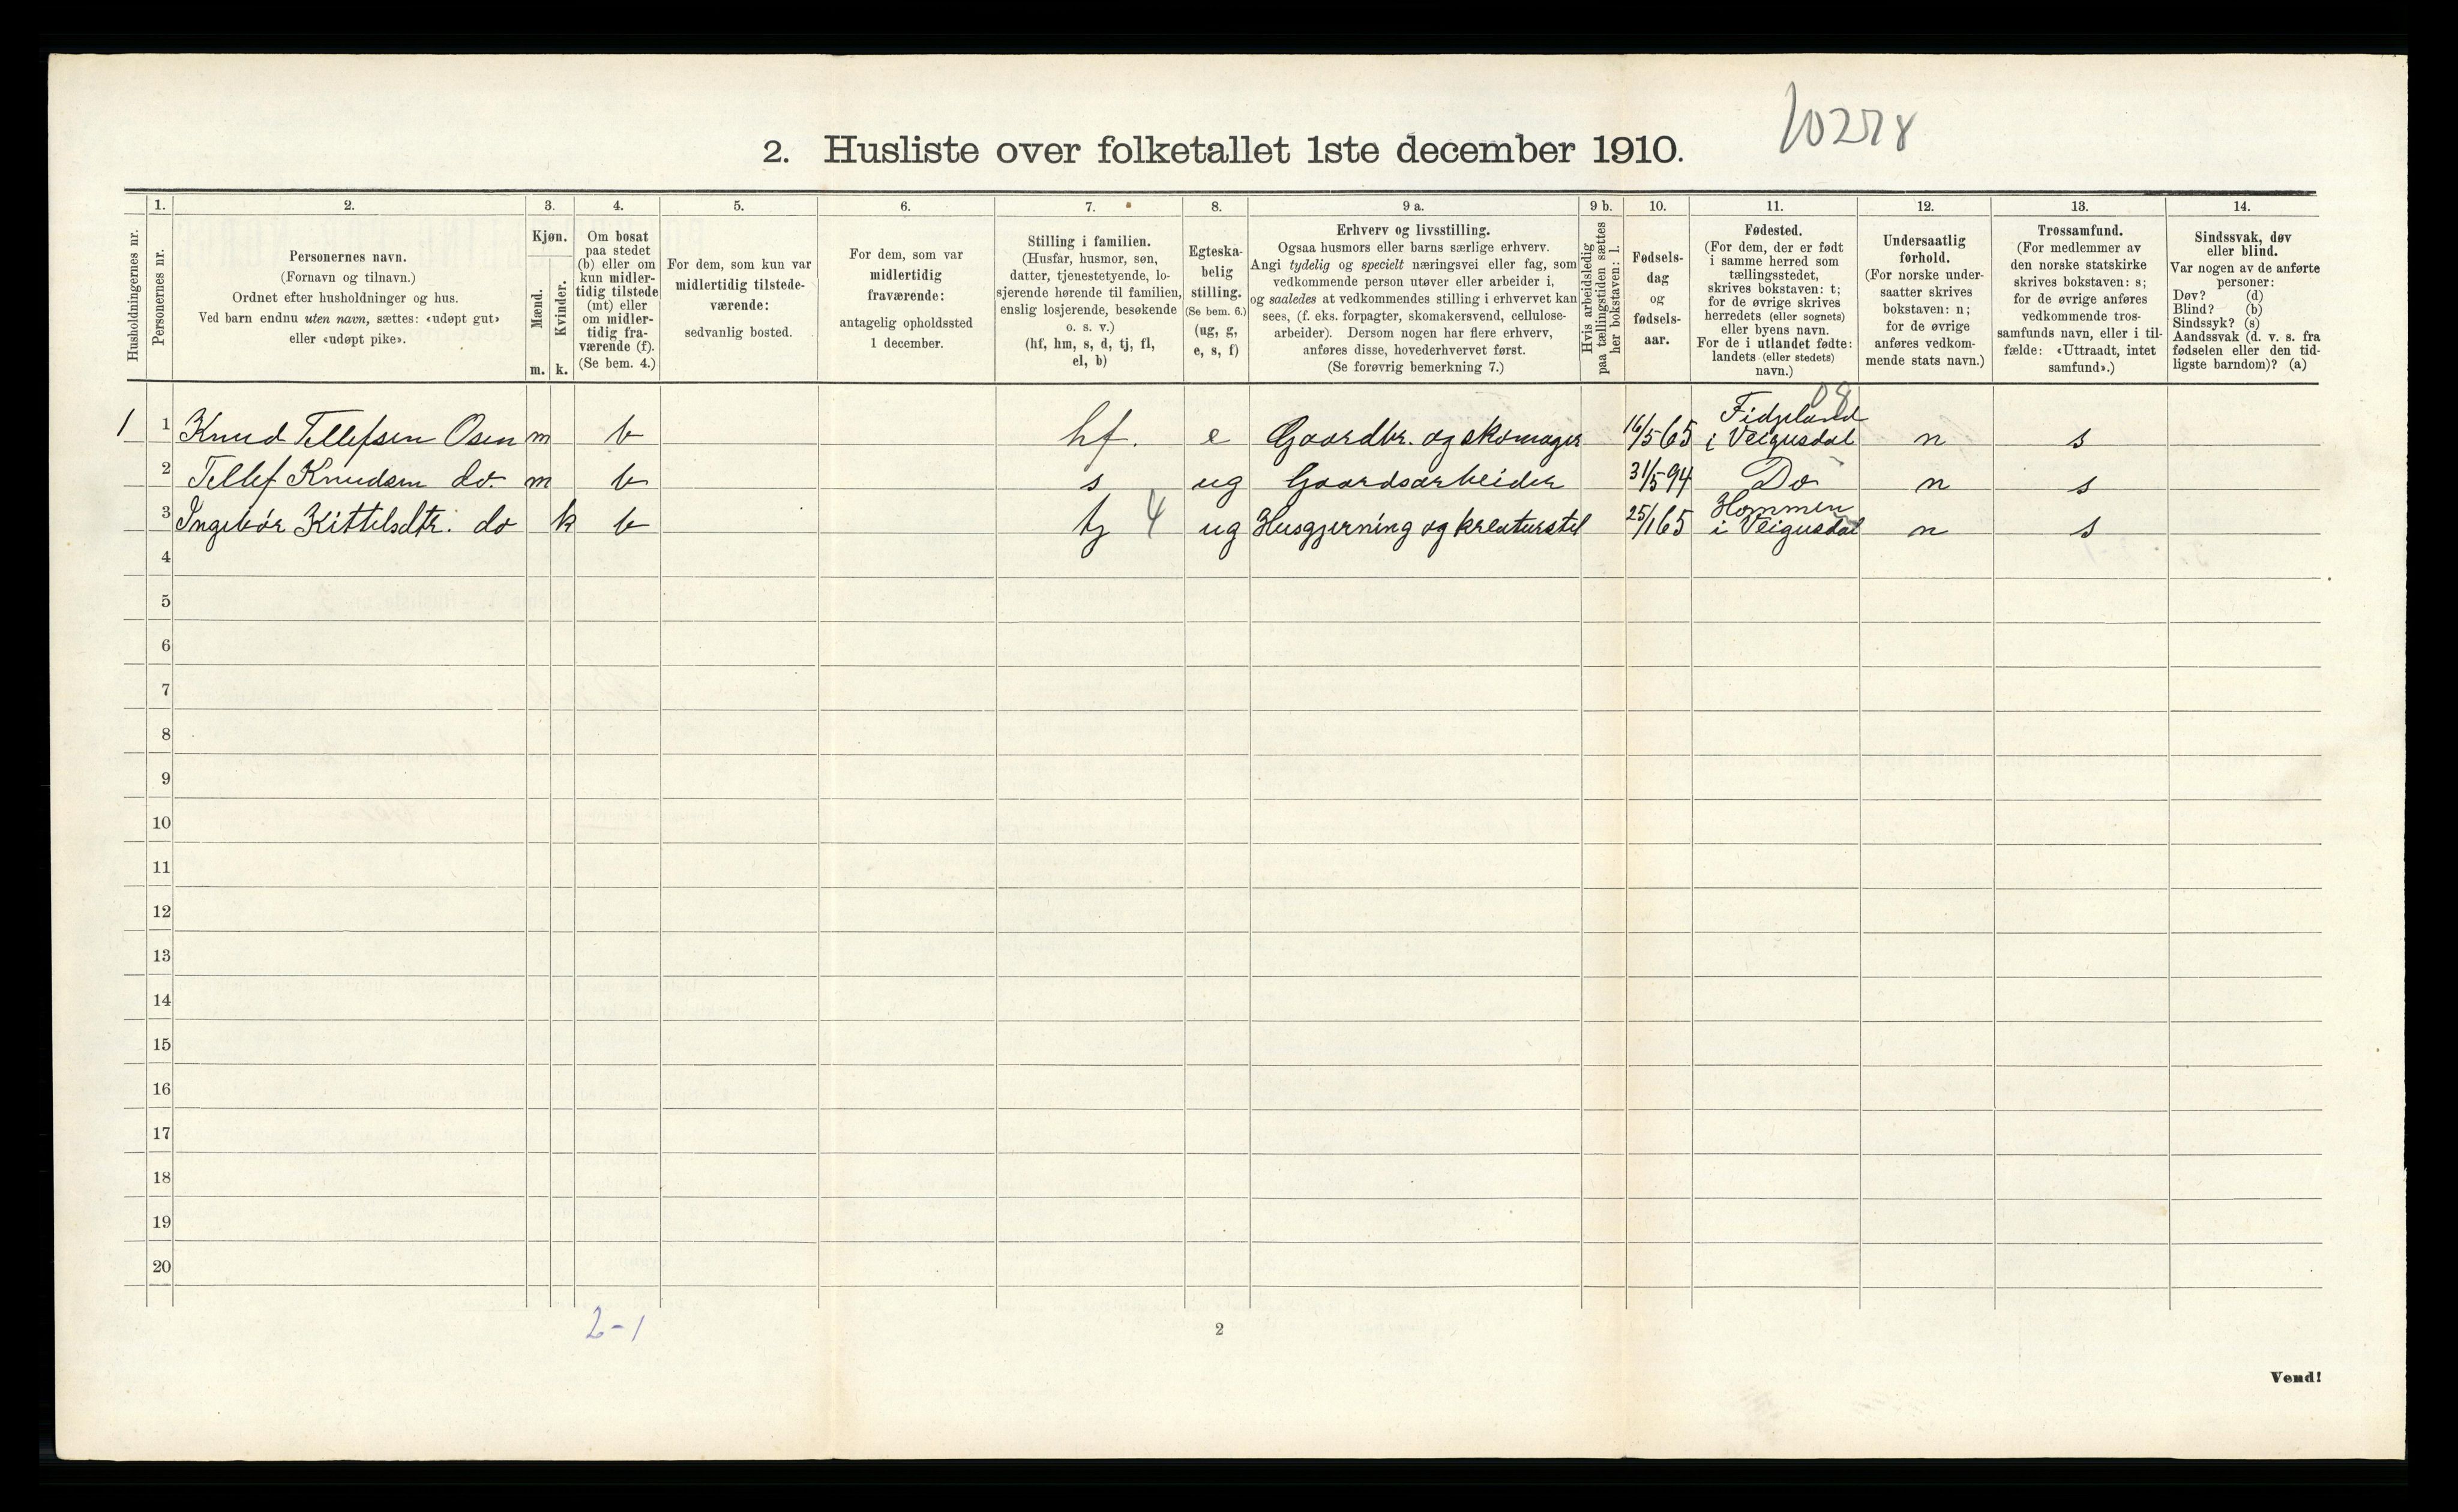 10278
2. Husliste over folketallet 1ste december 1910.
Husholdningernes nr.
1.
Personernes nr.
2.
Personernes navn.
(Fornavn og tilnavn.)
Ordnet efter husholdninger og hus.
Ved barn endnu uten navn, sættes: «udøpt gut»
eller «udøpt pike».
3.
Kjøn.
Mænd.
Kvinder.
m. k.
4.
Om bosat
paa stedet
(b) eller om
kun midler-
tidig tilstede
(mt) eller
om midler-
tidig fra-
værende (f).
(Se bem. 4.)
5.
For dem, som kun var
midlertidig tilstede-
værende:
sedvanlig bosted.
6.
For dem, som var
midlertidig
fraværende:
antagelig opholdssted
1 december.
7.
Stilling i familien.
(Husfar, husmor, søn,
datter, tjenestetyende, lo-
sjerende hørende til familien,
enslig losjerende, besøkende
o. s. v.)
(hf, hm, s, d, tj, fl,
el, b)
8.
Egteska-
belig
stilling.
(Se bem. 6.)
(ug, g,
e, s, f)
9 a.
Erhverv og livsstilling.
Ogsaa husmors eller barns særlige erhverv.
Angi tydelig og specielt næringsvei eller fag, som
vedkommende person utøver eller arbeider i,
og saaledes at vedkommendes stilling i erhvervet kan
sees, (f. eks. forpagter, skomakersvend, cellulose-
arbeider). Dersom nogen har flere erhverv,
anføres disse, hovederhvervet først.
(Se forøvrig bemerkning 7.)
9 b.
Hvis arbeidsledig
paa tællingstiden sættes
her bokstaven: l.
10.
Fødsels-
dag
og
fødsels-
aar.
11.
Fødested.
(For dem, der er født
i samme herred som
tællingsstedet,
skrives bokstaven: t;
for de øvrige skrives
herredets (eller sognets)
eller byens navn.
For de i utlandet fødte:
landets (eller stedets)
navn.)
12.
Undersaatlig
forhold.
(For norske under-
saatter skrives
bokstaven: n;
for de øvrige
anføres vedkom-
mende stats navn.)
13.
Trossamfund.
(For medlemmer av
den norske statskirke
skrives bokstaven: s;
for de øvrige anføres
vedkommende tros-
samfunds navn, eller i til-
fælde: «Uttraadt, intet
samfund».)
14.
Sindssvak, døv
eller blind.
Var nogen av de anførte
personer:
Døv? (d)
Blind? (b)
Sindssyk? (s)
Aandssvak (d. v. s. fra
fødselen eller den tid-
ligste barndom)? (a)
08
1 1 Knud Tellefsen Osen m b hf. e Gaardbr. og skomager 16/5 65 Fidjeland i Veigusdal n s
2 Tellef Knudsen do. m b s ug Gaardsarbeider 31/5 94 Do n s
3 Ingebør Kittelsdtr. do k b tj 4 ug Husgjerning og kreaturstel 25/1 65 Hommen i Veigusdal n s
4
5
6
7
8
9
10
11
12
13
14
15
16
17
18
19
20
2-1
2
Vend!